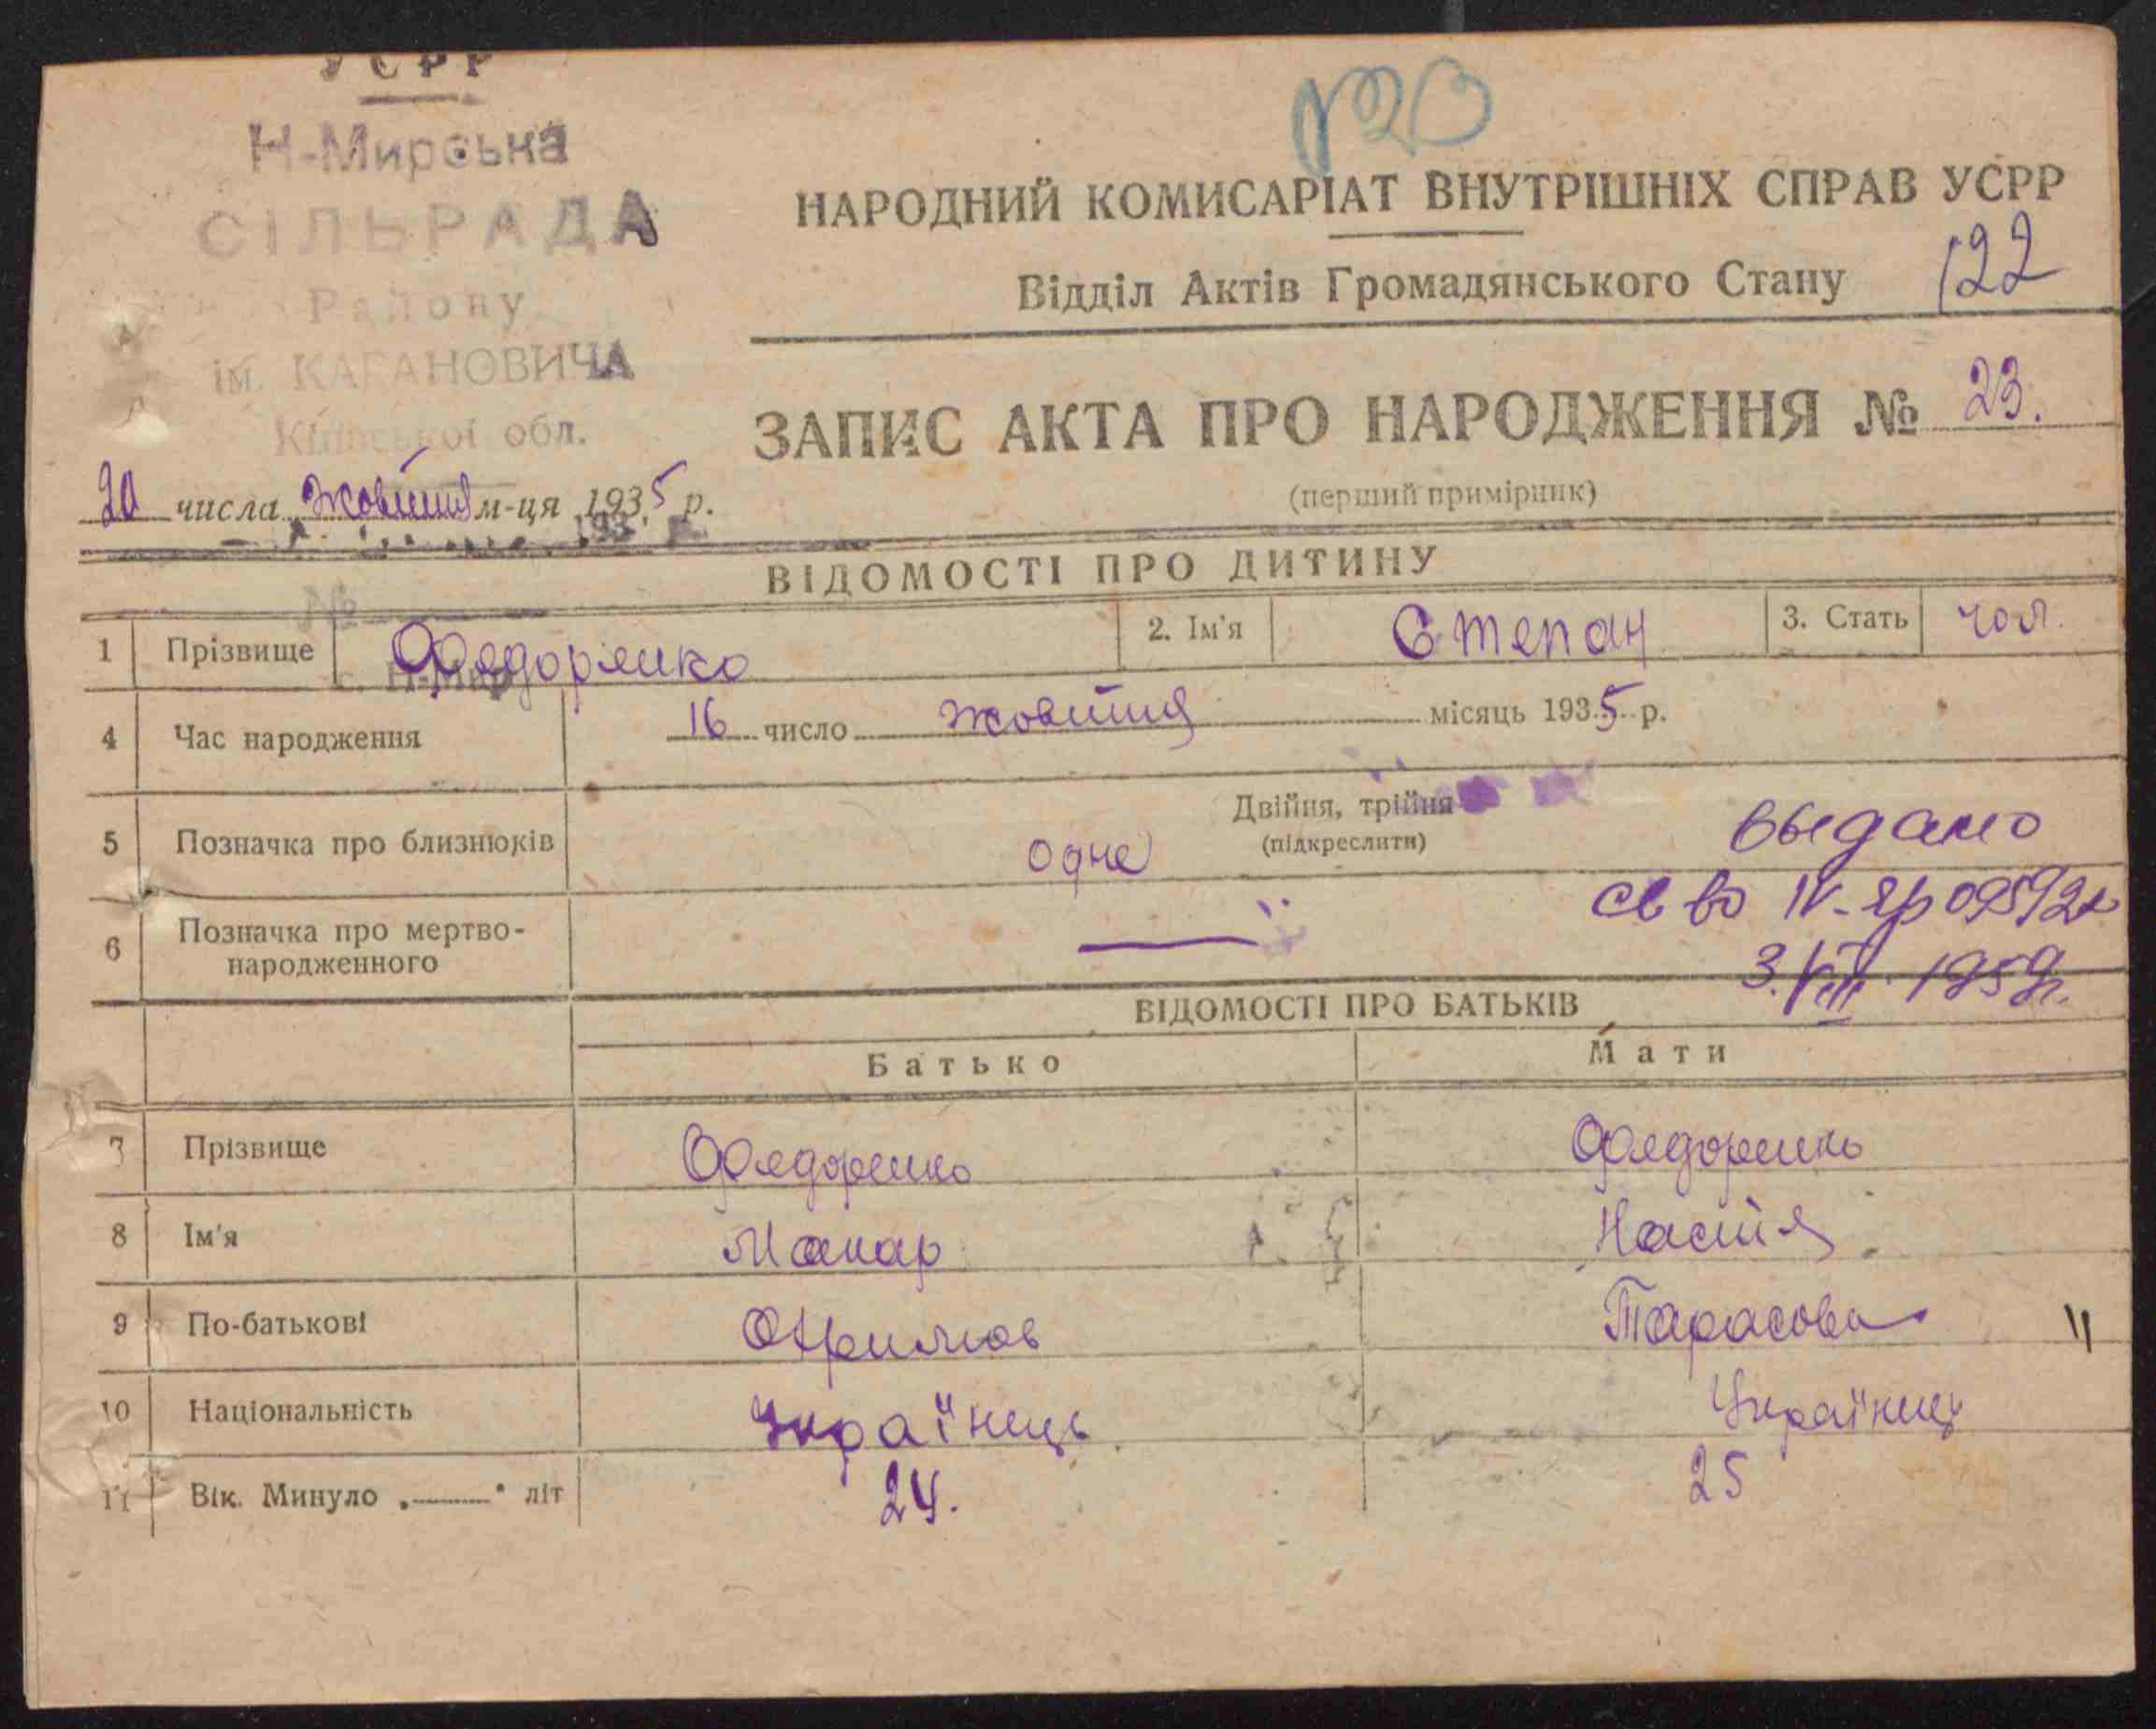 УСРР
Н-Мирська
СІЛЬРАДА
Району
ім. КАГАНОВИЧА
Київської обл.
20 числа Жовтня м-ця 1935 р.
193 р.
№
НАРОДНИЙ КОМИСАРІАТ ВНУТРІШНІХ СПРАВ УСРР
Відділ Актів Громадянського Стану 122
ЗАПИС АКТА ПРО НАРОДЖЕННЯ № 23.
(перший примірник)
ВІДОМОСТІ ПРО ДИТИНУ
1 Прізвище Федоренко 2. Ім'я Степан 3. Стать чол.
с. Н-Мир
4 Час народження 16 число жовтня місяць 1935 р.
5 Позначка про близнюків одне Двійня, трійня
(підкреслити)
выдано
св во IV-яр
3.VIII 1959г.
6 Позначка про мертво-
народженного —
ВІДОМОСТІ ПРО БАТЬКІВ
Батько Мати
7 Прізвище Федоренко Федоренко
8 Ім'я Макар Настя
9 По-батькові Тарасова
10 Національність Українець Українець
11 Вік. Минуло „——" літ 24. 25